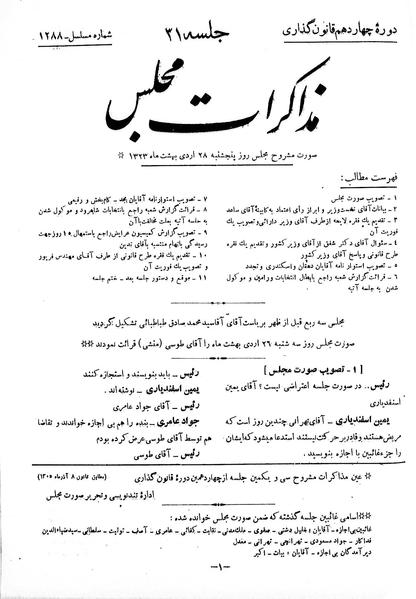 دورهٔ چهاردهم قانون گذاری
جلسه ۳۱
شماره مسلسل - ۱۲۸۸
مذاکرات مجلس
صورت مشروح مجلس روز پنجشنبه ۲۸ اردی بهشت ماه ۱۳۲۳ ※
فهرست مطالب:
۱ - تصویب صورت مجلس
۲ - بیانات آقای نخست وزیر و ابراز رأی اعتماد به کابینهٔ آقای ساعد
۳ - تقدیم یك فقره لایحه از طرف آقای وزیر دارائی و تصویب یك فوریت آن
۴ - سئوال آقای دکتر شفق از آقای وزیر کشور و تقدیم یك فقره طرح قانونی و پاسخ آقای وزیر کشور
۵ - تصویب استوارنامه آقایان دهقان و اسکندری و تجدد
۶ - قرائت گزارش شعبه راجع بابطال انتخابات ورامین و موکول شدن به جلسه آتیه
۷ - تصویب استوارنامه آقایان مجد - گنجبخش و رفیعی
۸ - قرائت گزارش شعبه راجع بانتخابات شاهرود و موکول شدن به جلسه آتیه بعلت مخالفت با آن
۹ - تصویب گزارش کمیسیون عرایض راجع باستمهال ۱۵ روز جهت رسیدگی باتهام منتسبه بآقای تدین
۱۰ - تقدیم یك فقره طرح قانونی از طرف آقای مهندس فریور و تصویب یك فوریت آن
۱۱ - موقع و دستور جلسه بعد - ختم جلسه
مجلس سه ربع قبل از ظهر بریاست آقای آقاسید محمد صادق طباطبائی تشکیل گردید
صورت مجلس روز سه شنبه ۲۶ اردی بهشت ماه را آقای طوسی (منشی) قرائت نمودند ※※
[ ۱ - تصویب صورت مجلس ]
رئیس - در صورت جلسه اعتراضی نیست؟ آقای یمین اسفندیاری
یمین اسفندیاری - آقای تهرانی چندین روز است که مریض هستند و قادر بر حرکت نیستند استدعا میشود که ایشان را جزء غائبین با اجازه بنویسید.
رئیس - باید بنویسند و استجازه کنند
یمین اسفندیاری - نوشته اند.
رئیس - آقای جواد عامری
جواد عامری - بنده را هم بی اجازه خواندند و تقاضا هم توسط آقای طوسی عرض کرده بودم
رئیس - آقای طوسی
※ عین مذاکرات مشروح سی و یکمین جلسه از چهاردهمین دورهٔ قانون گذاری (مطابق قانون ۸ آذر ماه ۱۳۰۵)
ادارهٔ تندنویسی و تحریر صورت مجلس
※※ اسامی غائبین جلسه گذشته که ضمن صورت مجلس خوانده شده:
غائبین بی اجازه - آقایان: خلیل دشتی - صفوی - ملك مدنی - نقابت - کفائی - عامری - آصف - تولیت - سلطانی - سید ضیاءالدین
فداکار - جواد مسعودی - تهرانچی - تهرانی - معدل
دیر آمدگان بی اجازه - آقایان: بیات - اکبر
-۱-